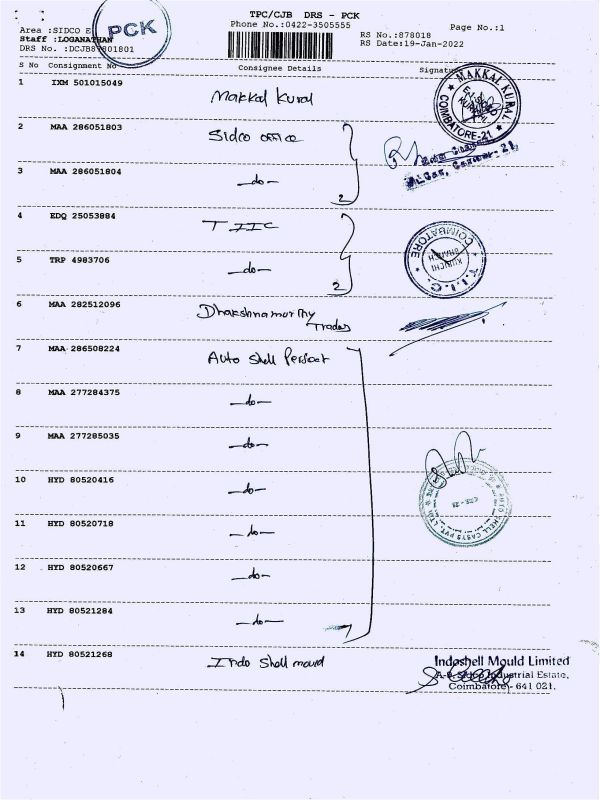 TPC/CJB DRS - PCK
Phone No.:0422-3505555
Page No.:1
PCK
Area :SIDCO E
Staff :LOGANATHAN
DRS No. :DCJB87801801
RS No.:878018
RS Date:19-Jan-2022
S No Consignment No Consignee Details Signatu
1 IXM 501015049 Makkal Kural
MAKKAL KURAL
COIMBATORE-21
2 MAA 286051803 Sidco office
3 MAA 286051804 -do-
2
4 EDQ 25053884 TIIC
5 TRP 4983706 -do-
2
T.I.I.C.
KURICHI
BRANCH
COIMBATORE
6 MAA 282512096 Dhakshnamurthy
Trades
7 MAA 286508224 Auto Shell Perfoct
8 MAA 277284375 -do-
9 MAA 277285035 -do-
10 HYD 80520416 -do-
11 HYD 80520718 -do-
12 HYD 80520667 -do-
13 HYD 80521284 -do-
7
14 HYD 80521268 Indo Shell mould
Indoshell Mould Limited
A-9, Sidco Industrial Estate,
Coimbatore - 641 021.